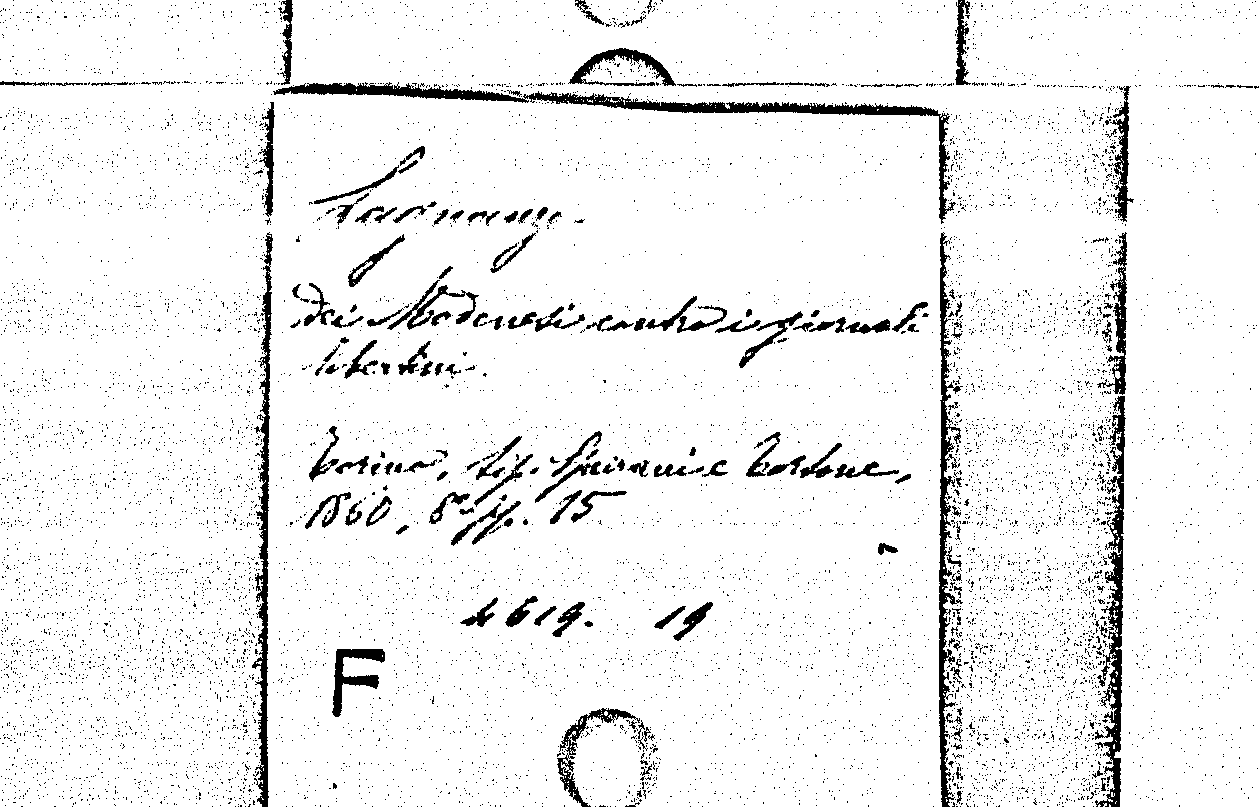 Lagnanze
dei Modenesi contro i giornali
libertini.
Torino, tip. Speirani e Tortone,
1860, 8° pp. 15
4619. 19
F